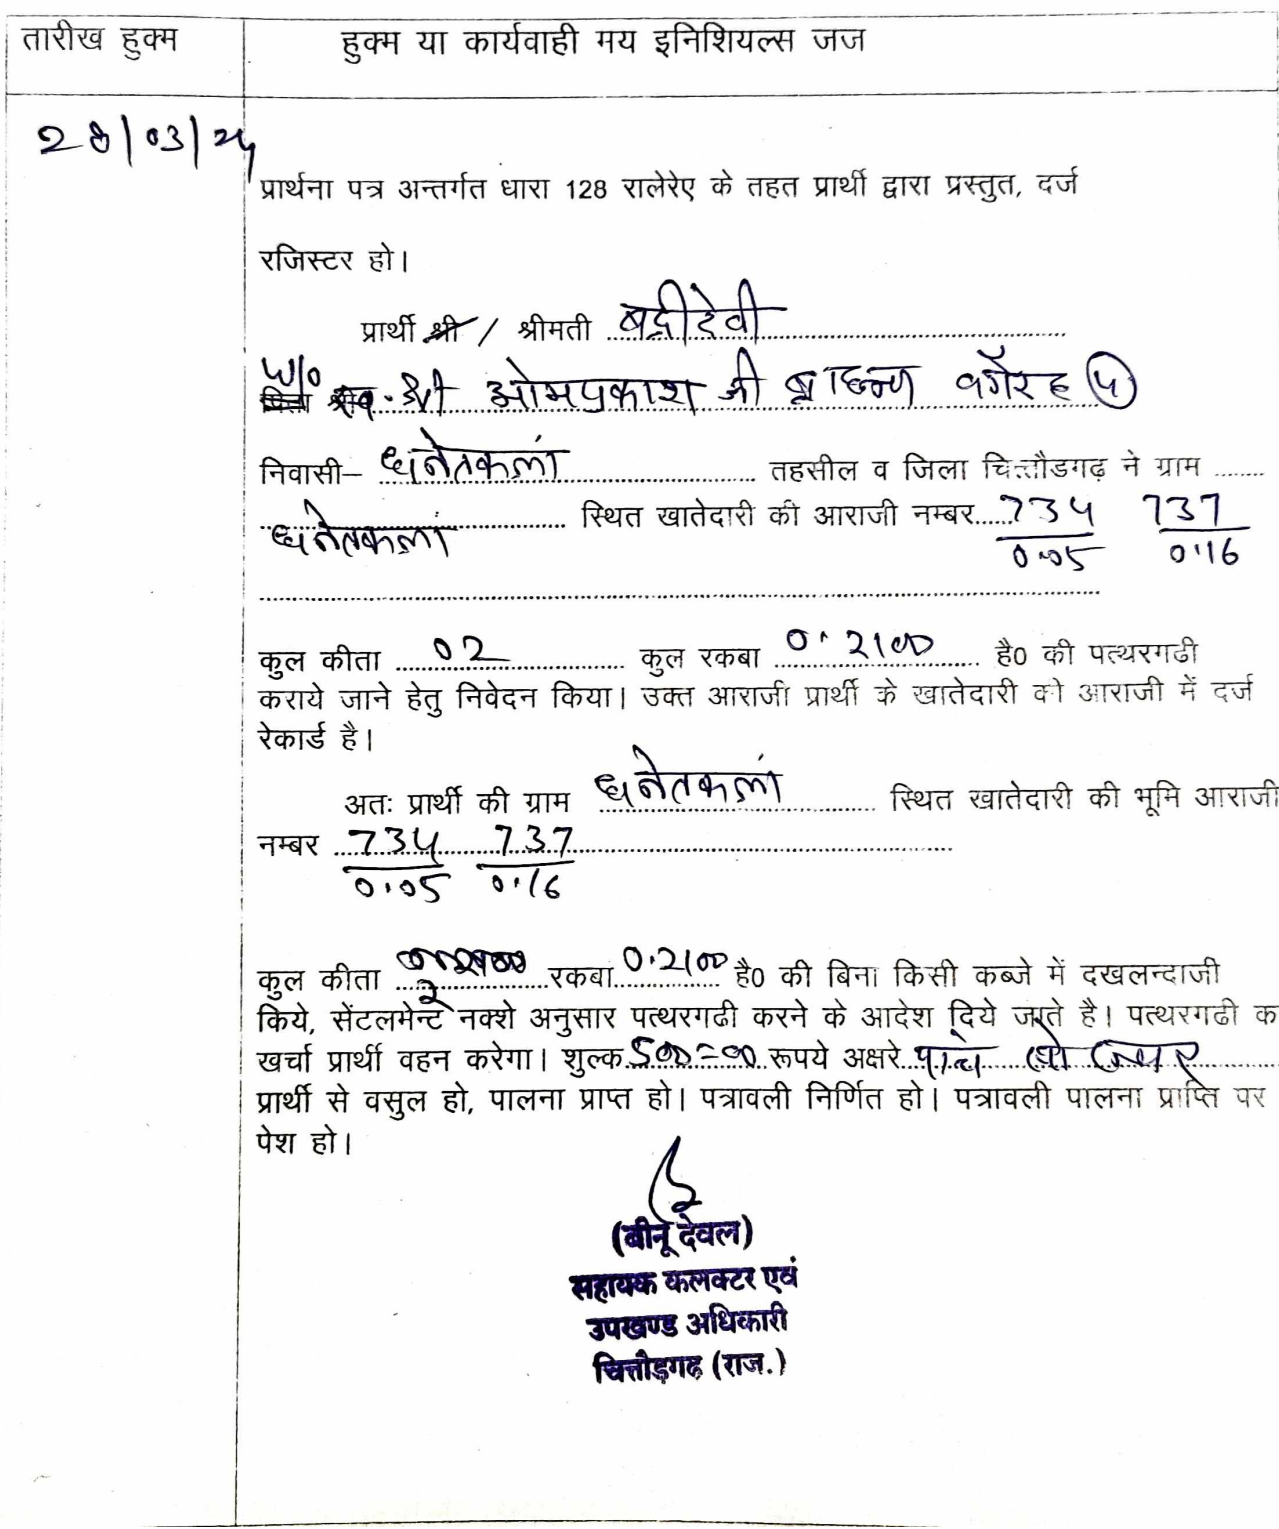 तारीख हुक्म
हुक्म या कार्यवाही मय इनिशियल्स जज
28/03/24
प्रार्थना पत्र अन्तर्गत धारा 128 रालेरेए के तहत प्रार्थी द्वारा प्रस्तुत, दर्ज
रजिस्टर हो।
प्रार्थी श्री / श्रीमती बद्रीदेवी
W/o स्व. श्री ओमप्रकाश जी ब्राह्मण वगैरह
निवासी– धनेतकलां तहसील व जिला चित्तौडगढ़ ने ग्राम
धनेतकलां स्थित खातेदारी की आराजी नम्बर 734 737
0.05 0.16
कुल कीता 02 कुल रकबा 0.2100 है0 की पत्थरगढी
कराये जाने हेतु निवेदन किया। उक्त आराजी प्रार्थी के खातेदारी की आराजी में दर्ज
रेकार्ड है।
अतः प्रार्थी की ग्राम धनेतकलां स्थित खातेदारी की भूमि आराजी
नम्बर 734 737
0.05 0.16
कुल कीता 2 रकबा 0.2100 है0 की बिना किसी कब्जे में दखलन्दाजी
किये, सेंटलमेन्ट नक्शे अनुसार पत्थरगढी करने के आदेश दिये जाते है। पत्थरगढी क
खर्चा प्रार्थी वहन करेगा। शुल्क 500=00 रूपये अक्षरे पांच सो
प्रार्थी से वसुल हो, पालना प्राप्त हो। पत्रावली निर्णित हो। पत्रावली पालना प्राप्ति पर
पेश हो।
(बीनू देवल)
सहायक कलक्टर एवं
उपखण्ड अधिकारी
चित्तौड़गढ़ (राज.)